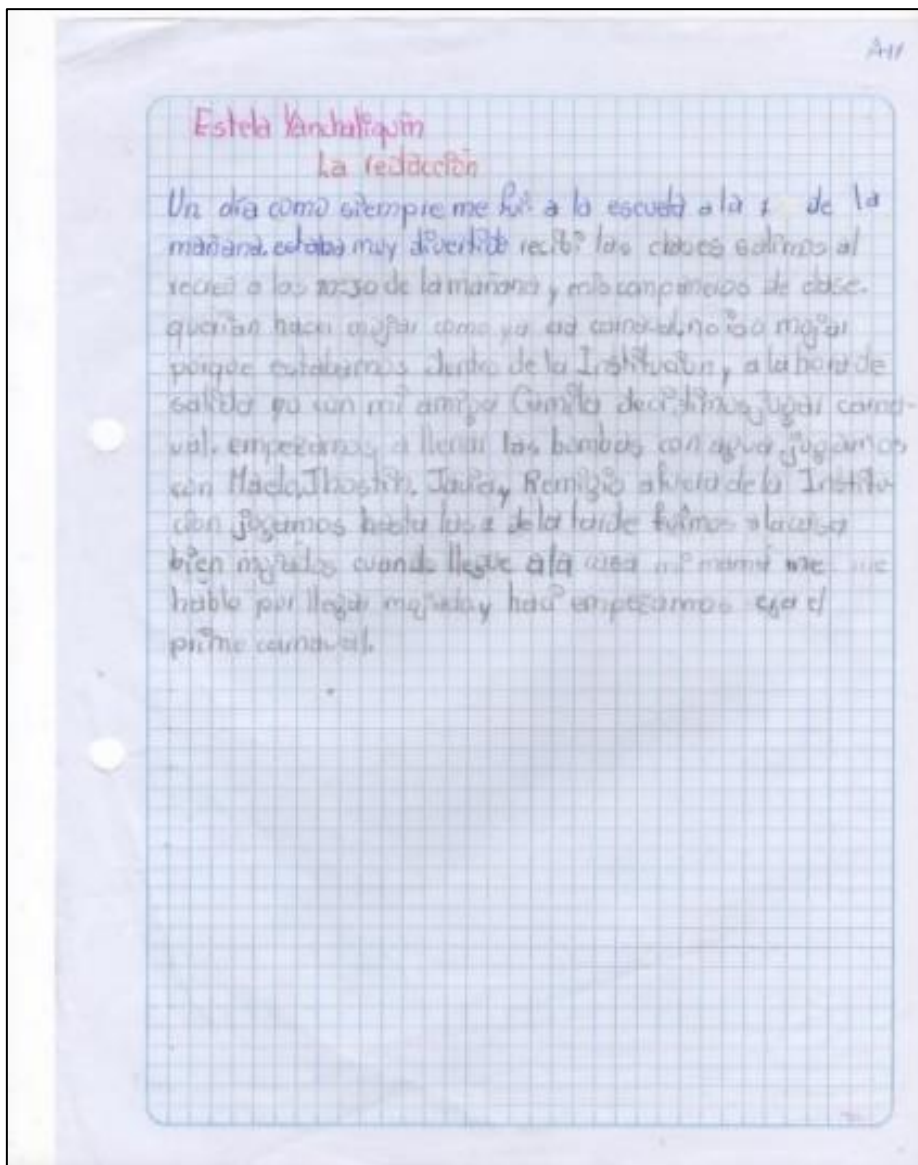 A11
Estela Yanchaliquin
La redacción
Un día como siempre me fui a la escuela a la de la
mañana. estaba muy divertido recibi las clases salimos al
recreo a las 10:30 de la mañana y mis compañeros de clase.
querian hacer mojar como ya era carnaval. no iso mojar
porque estabamos dentro de la Institucion, a la hora de
salida yo con mi amiga Camila decidimos jugar carna-
val. empezamos a llenar las bombas con agua, jugamos
con Javier y Remigio afuera de la Institu
cion jugamos hasta las de la tarde fuimos a la casa
bien mojados cuando llegue a la casa mi mamá me me
hablo por llegar mojada y haci empezamos el
prime carnaval.